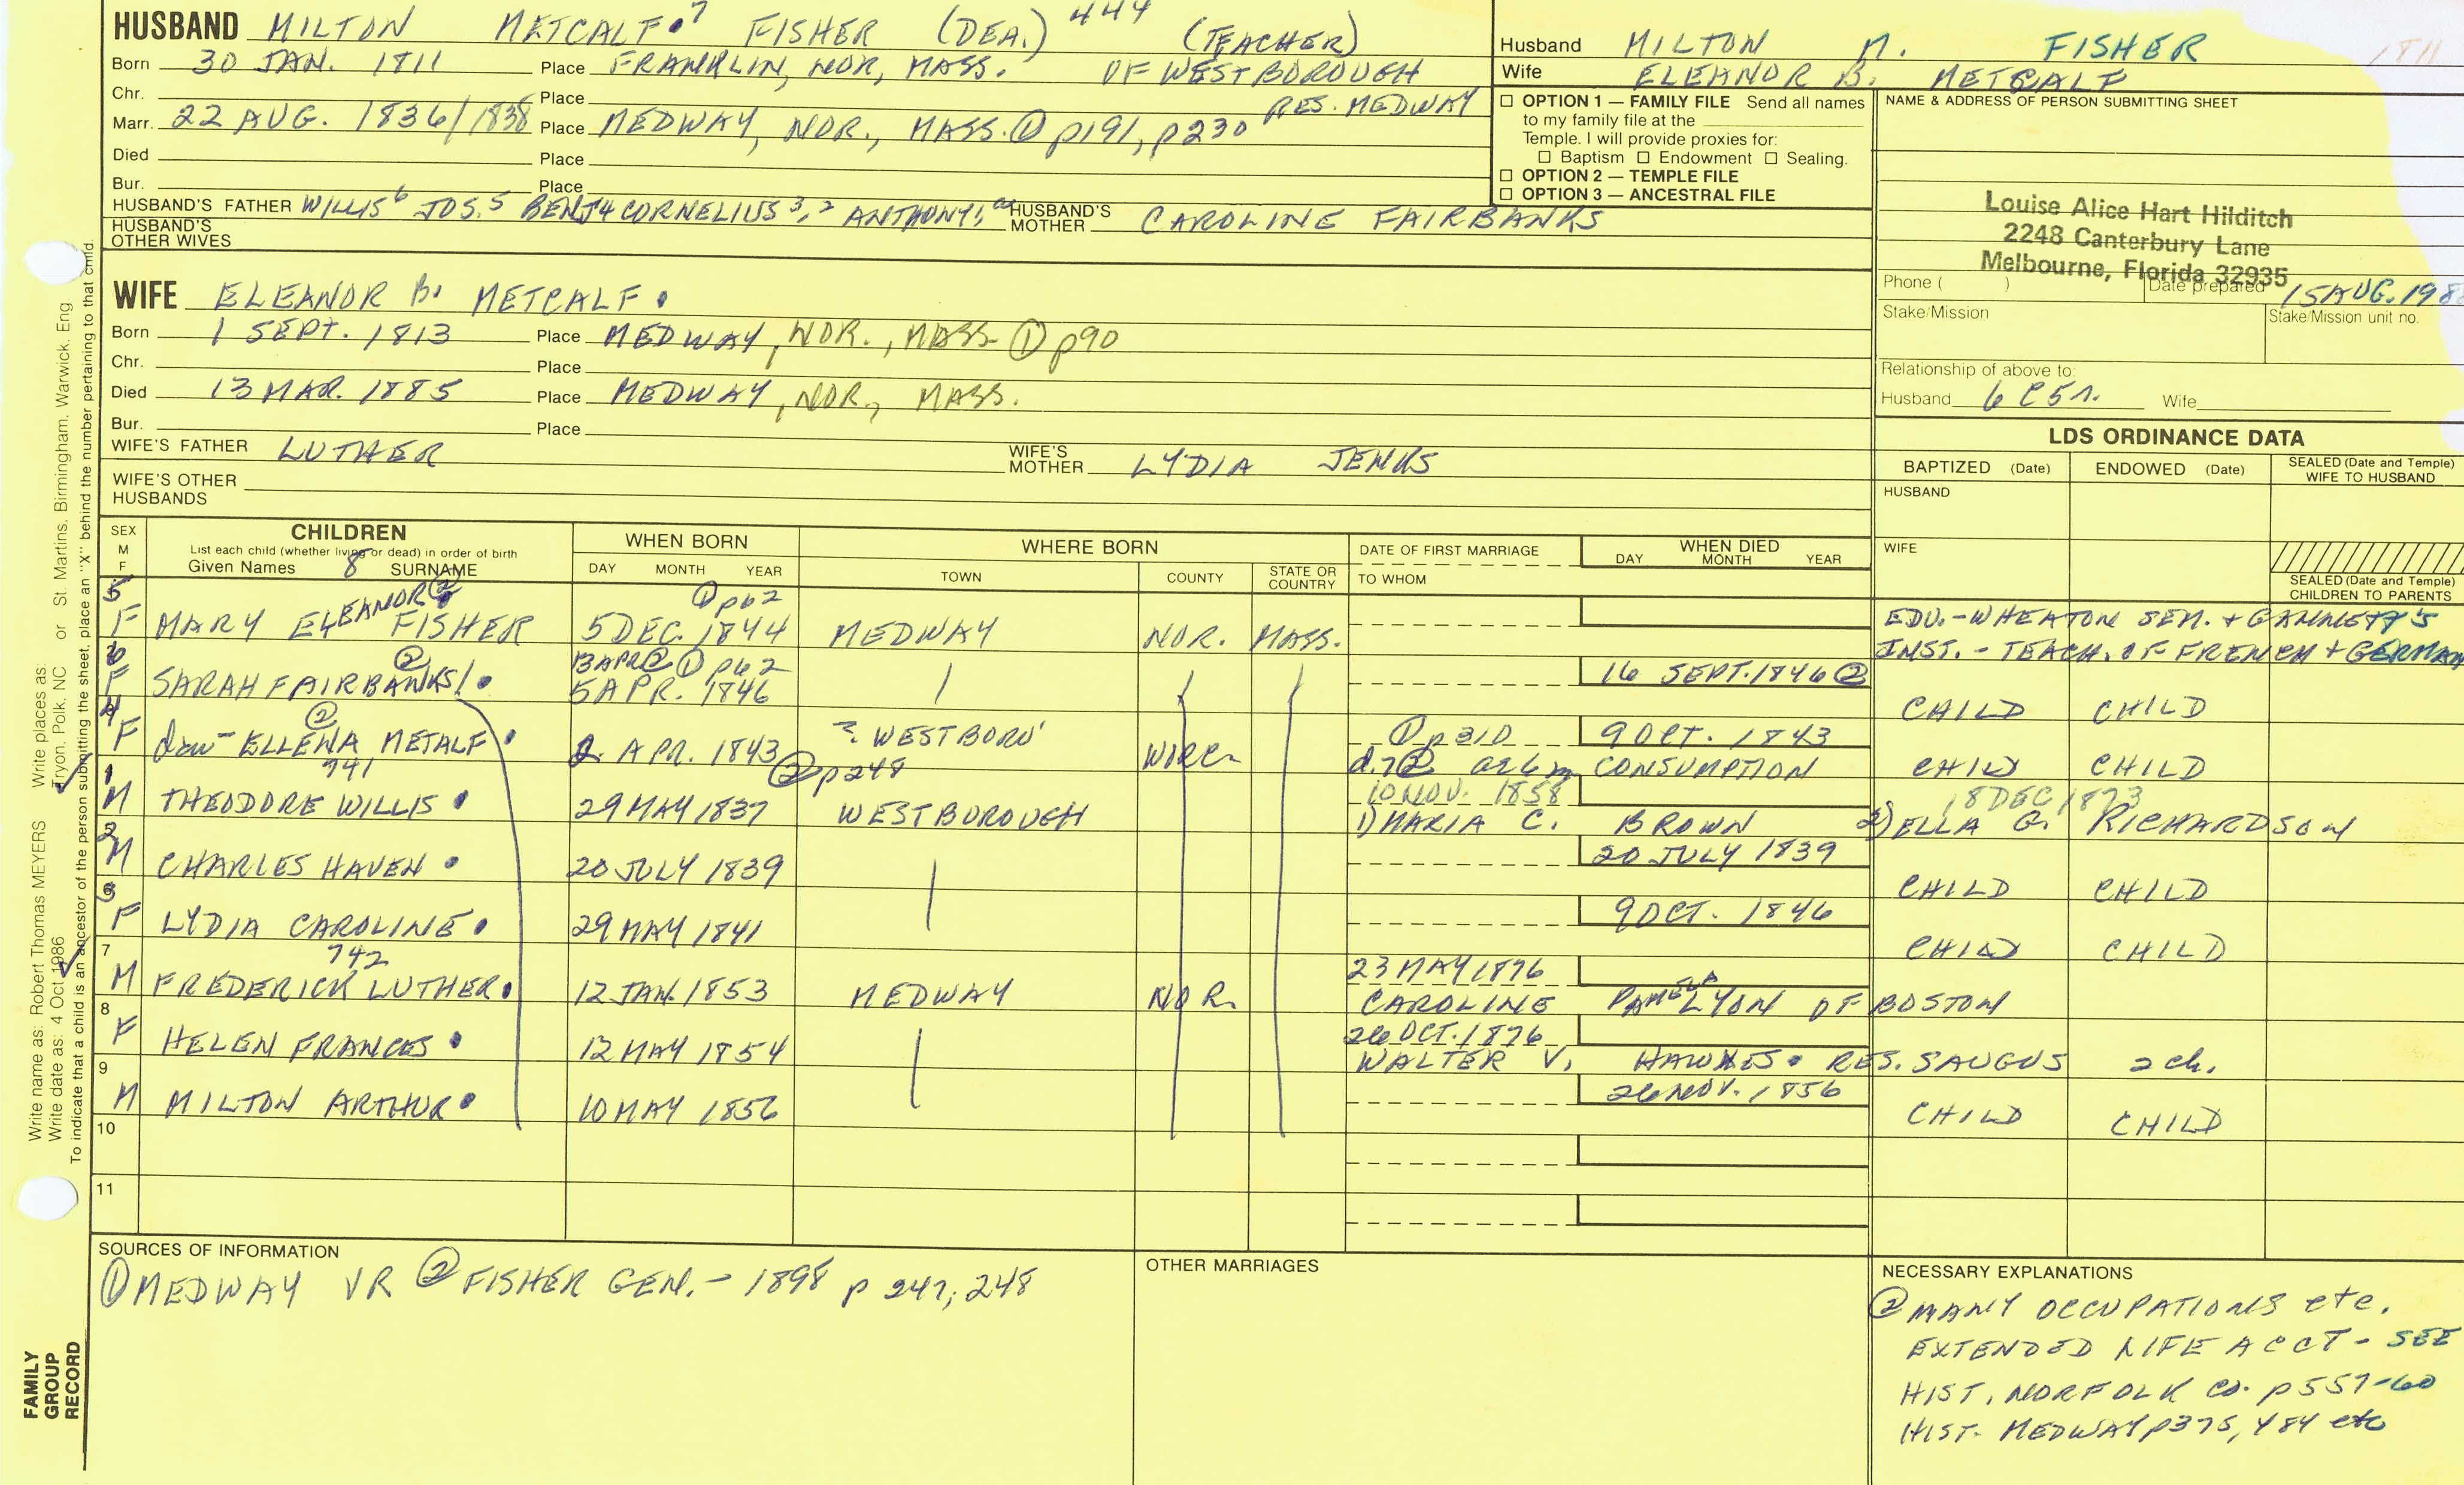 HUSBAND MILTON METCALF.7 FISHER (DEA.) 444 (TEACHER)
Born 30 JAN. 1811 Place FRANKLIN, NOR, MASS. OF WESTBOROUGH
Chr. Place RES. MEDWAY
Marr. 22 AUG. 1836/1838 Place MEDWAY, NOR., MASS. ① p191, p230
Died Place
Bur. Place
HUSBAND'S FATHER WILLIS6 JOS.5 BENJ4 CORNELIUS3,2 ANTHONY1, HUSBAND'S MOTHER CAROLINE FAIRBANKS
HUSBAND'S OTHER WIVES
Husband MILTON M. FISHER 1811
Wife ELEANOR B. METCALF
☐ OPTION 1 — FAMILY FILE Send all names
to my family file at the
Temple. I will provide proxies for:
☐ Baptism ☐ Endowment ☐ Sealing.
☐ OPTION 2 — TEMPLE FILE
☐ OPTION 3 — ANCESTRAL FILE
NAME & ADDRESS OF PERSON SUBMITTING SHEET
Louise Alice Hart Hilditch
2248 Canterbury Lane
Melbourne, Florida 32935
Phone ( ) Date prepared 15 AUG. 198
Stake/Mission Stake/Mission unit no.
Relationship of above to:
Husband 6C5r. Wife
WIFE ELEANOR B. METCALF.
Born 1 SEPT. 1813 Place MEDWAY, NOR., MASS. ① p90
Chr. Place
Died 13 MAR. 1885 Place MEDWAY, NOR., MASS.
Bur. Place
WIFE'S FATHER LUTHER WIFE'S MOTHER LYDIA JENKS
WIFE'S OTHER HUSBANDS
LDS ORDINANCE DATA
BAPTIZED (Date) ENDOWED (Date) SEALED (Date and Temple) WIFE TO HUSBAND
HUSBAND
WIFE
SEALED (Date and Temple) CHILDREN TO PARENTS
SEX M F
CHILDREN
List each child (whether living or dead) in order of birth
Given Names 8 SURNAME
WHEN BORN
DAY MONTH YEAR
WHERE BORN
TOWN COUNTY STATE OR COUNTRY
DATE OF FIRST MARRIAGE
TO WHOM
WHEN DIED
DAY MONTH YEAR
5 F MARY ELEANOR② FISHER ① p62 5 DEC. 1844 MEDWAY NOR. MASS. EDU.-WHEATON SEM. + GANNETT'S
INST. - TEACH. OF FRENCH + GERMAN
6 F SARAH FAIRBANKS/. ② 13 APR② ① p62 5 APR. 1846 16 SEPT. 1846 ② CHILD CHILD
4 F dau- ELLENA METALF. ② 2 APR. 1843 ② p248 ? WESTBORO' WORC. ① p310 9 OCT. 1843
d.7② at 6m CONSUMPTION CHILD CHILD
1 M 741 THEODORE WILLIS. 29 MAY 1837 WESTBOROUGH 10 NOV. 1858 18 DEC 1873
1) MARIA C. BROWN 2) ELLA G. RICHARDSON
2 M CHARLES HAVEN. 20 JULY 1839 20 JULY 1839 CHILD CHILD
3 F LYDIA CAROLINE. 29 MAY 1841 9 OCT. 1846 CHILD CHILD
7 M 742 FREDERICK LUTHER. 12 JAN. 1853 MEDWAY NOR. 23 MAY 1876
CAROLINE PAMELA LYON OF BOSTON
8 F HELEN FRANCES. 12 MAY 1854 26 OCT. 1876
WALTER V. HAWKES. RES. SAUGUS 2 ch.
9 M MILTON ARTHUR. 10 MAY 1856 26 NOV. 1856 CHILD CHILD
10
11
SOURCES OF INFORMATION
① MEDWAY VR ② FISHER GEN. - 1898 p 247, 248
OTHER MARRIAGES
NECESSARY EXPLANATIONS
② MANY OCCUPATIONS etc.
EXTENDED LIFE ACCT - SEE
HIST. NORFOLK CO. p557-60
HIST. MEDWAY p375, 484 etc
Write name as: Robert Thomas MEYERS Write places as: St. Martins, Birmingham, Warwick, Eng
Write date as: 4 Oct 1986 Tryon, Polk, NC or
To indicate that a child is an ancestor of the person submitting the sheet, place an "X" behind the number pertaining to that child.
FAMILY
GROUP
RECORD